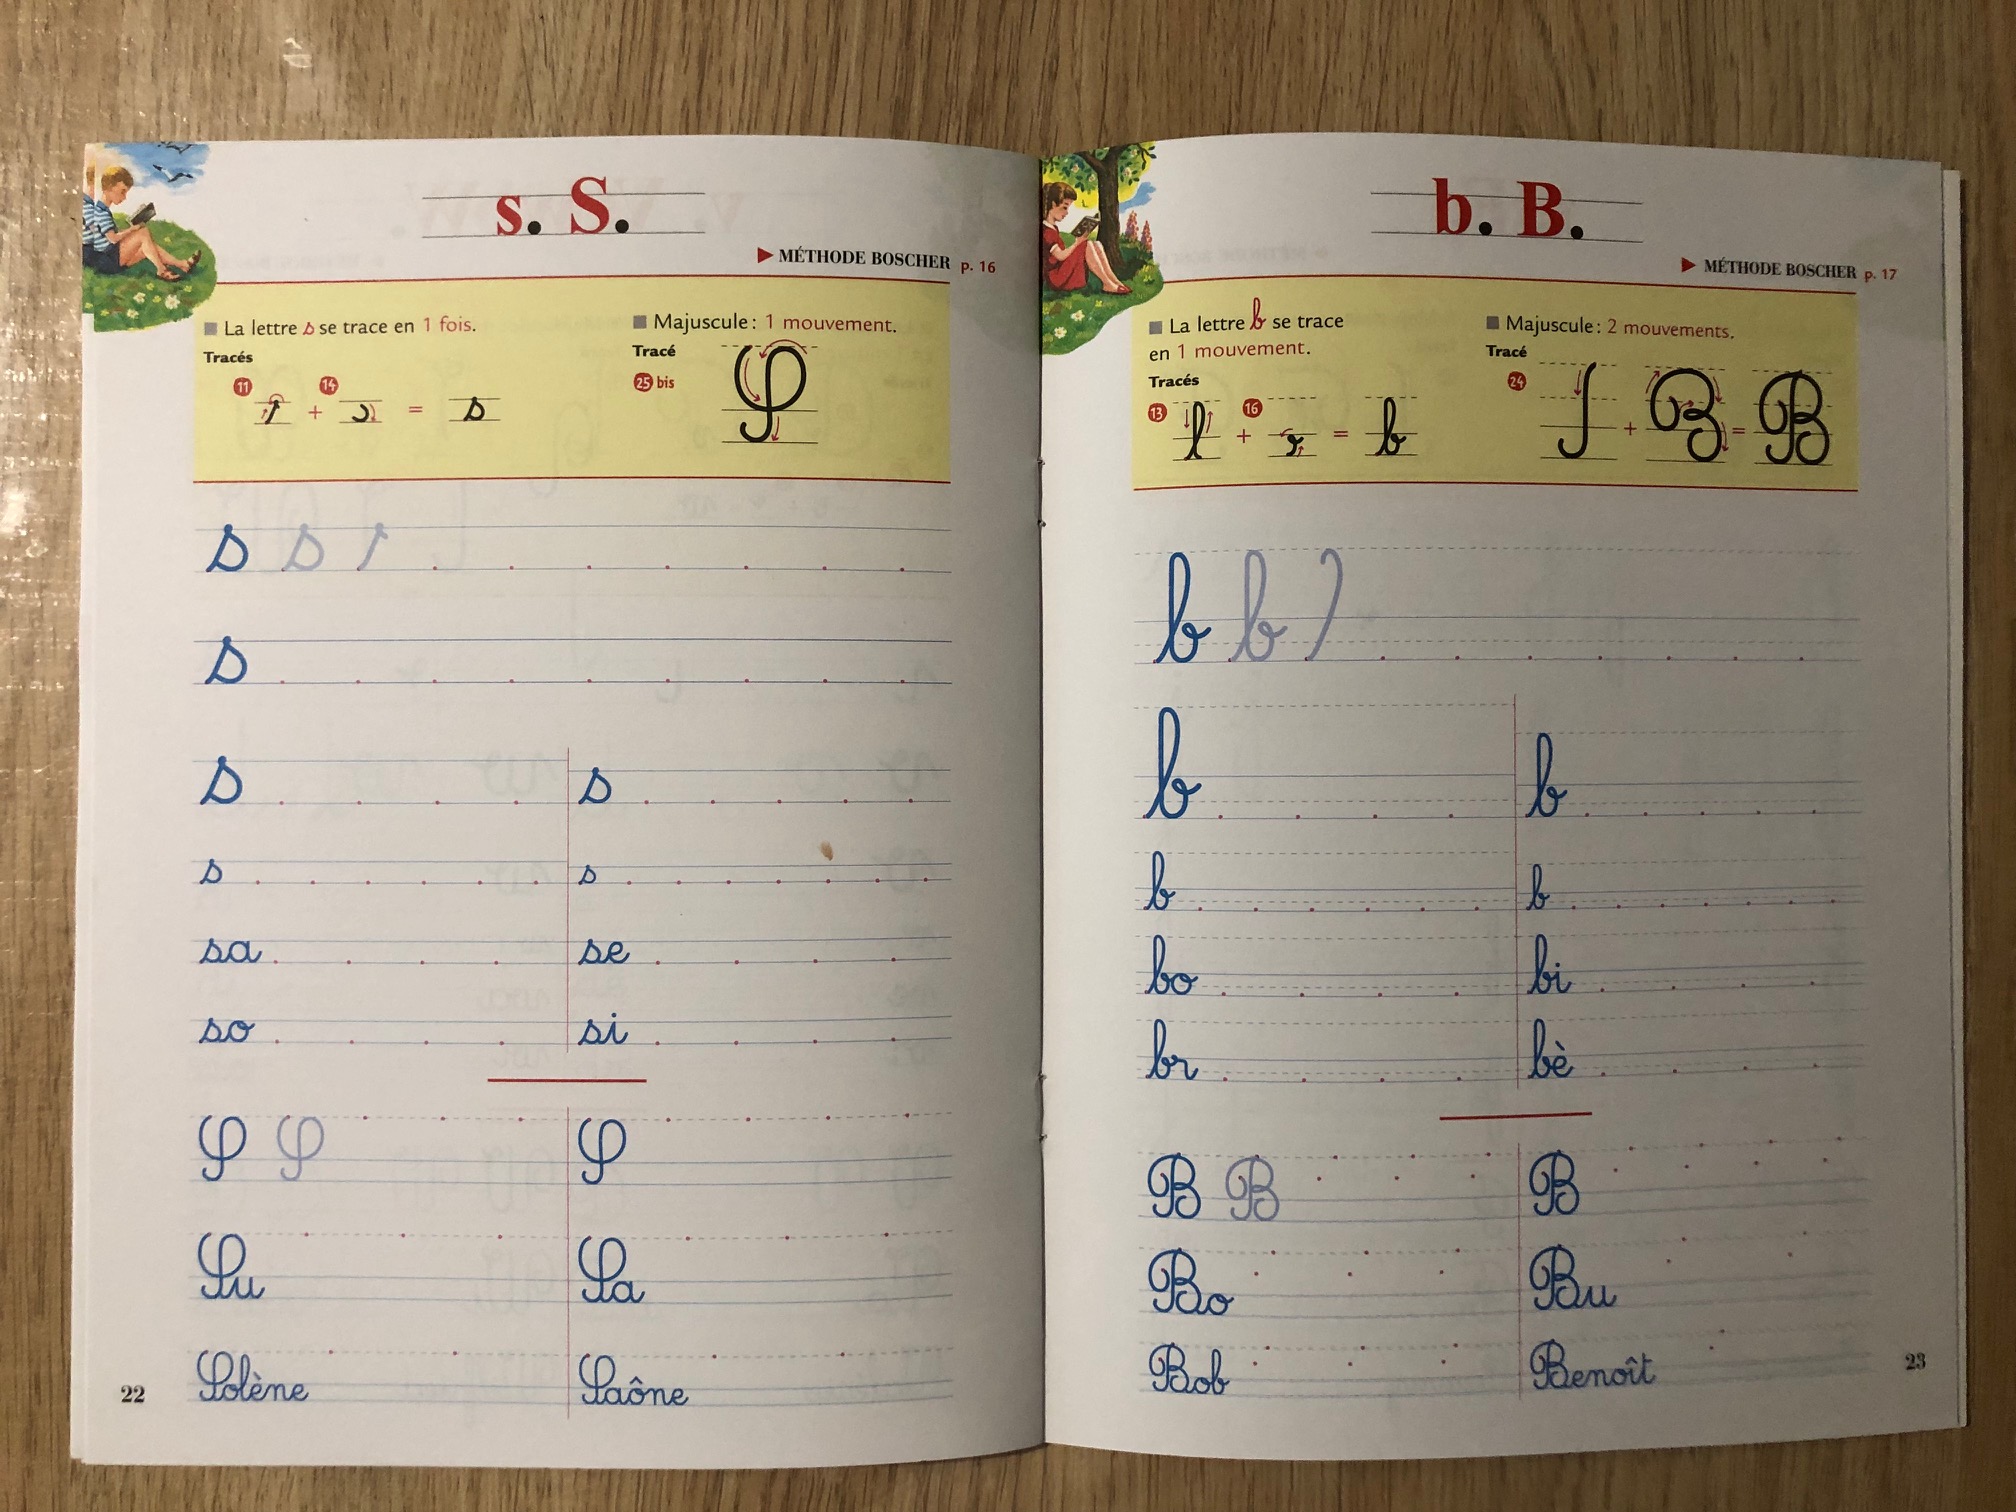 s. S.
MÉTHODE BOSCHER p. 16
La lettre s se trace en 1 fois.
Tracés
11 + 14 = s
Majuscule : 1 mouvement.
Tracé
25 bis S
s s
s
s s
s s
sa se
so si
S S S
Su Sa
Solène Saône
22
b. B.
MÉTHODE BOSCHER p. 17
La lettre b se trace
en 1 mouvement.
Tracés
13 + 16 = b
Majuscule : 2 mouvements.
Tracé
24 + = B
b b
b b
b b
bo bi
br bè
B B B
Bo Bu
Bob Benoît
23